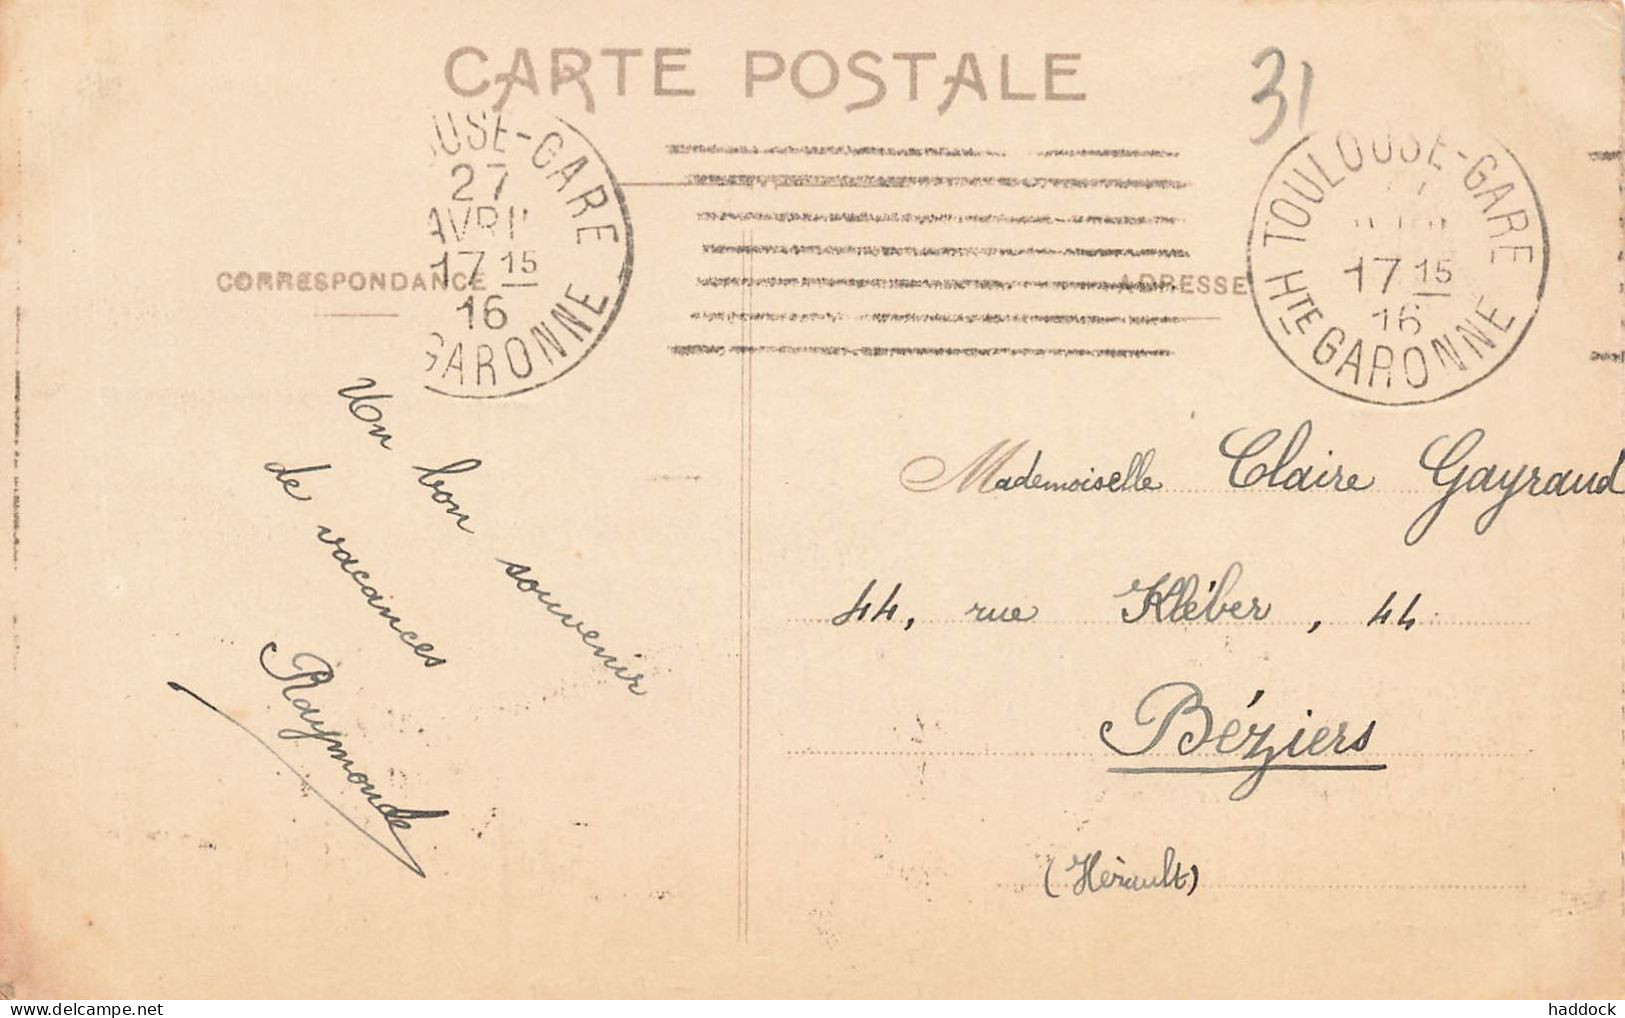 CARTE POSTALE
31
USE-GARE
27
AVRIL
17 15
16
GARONNE
TOULOUSE-GARE
17 15
16
HTE GARONNE
CORRESPONDANCE
ADRESSE
Un bon souvenir
de vacances
Raymonde
Mademoiselle Claire Gayraud
44, rue Kléber, 44
Béziers
(Hérault)
haddock